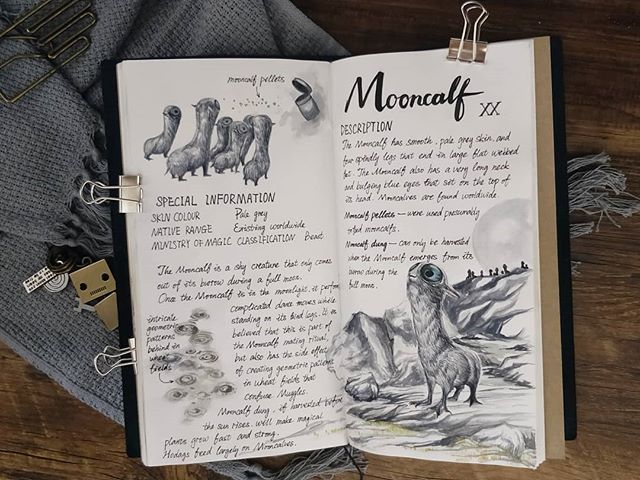 mooncalf pellets
SPECIAL INFORMATION
SKIN COLOUR Pale grey
NATIVE RANGE Existing worldwide
MINISTRY OF MAGIC CLASSIFICATION Beast
The Mooncalf is a shy creature that only comes
out of its burrow during a full moon.
Once the Mooncalf is in the moonlight, it perform
complicated dance moves while
standing on its hind legs. It is
believed that this is part of
the Mooncalf mating ritual,
but also has the side effect
of creating geometric patterns
in wheat fields that
confuse Muggles.
intricate
geometric
patterns
behind in
wheat
fields
Mooncalf dung, if harvested before
the sun rises, will make magical
plants grow fast and strong.
Hodags feed largely on Mooncalves.
Mooncalf XX
DESCRIPTION
The Mooncalf has smooth, pale grey skin, and
four spindly legs that end in large flat webbed
feet. The Mooncalf also has a very long neck
and bulging blue eyes that sit on the top of
its head. Mooncalves are found worldwide.
Mooncalf pellets — were used presumably
to feed mooncalfs.
Mooncalf dung — can only be harvested
when the Mooncalf emerges from its
burrow during the
full moon.